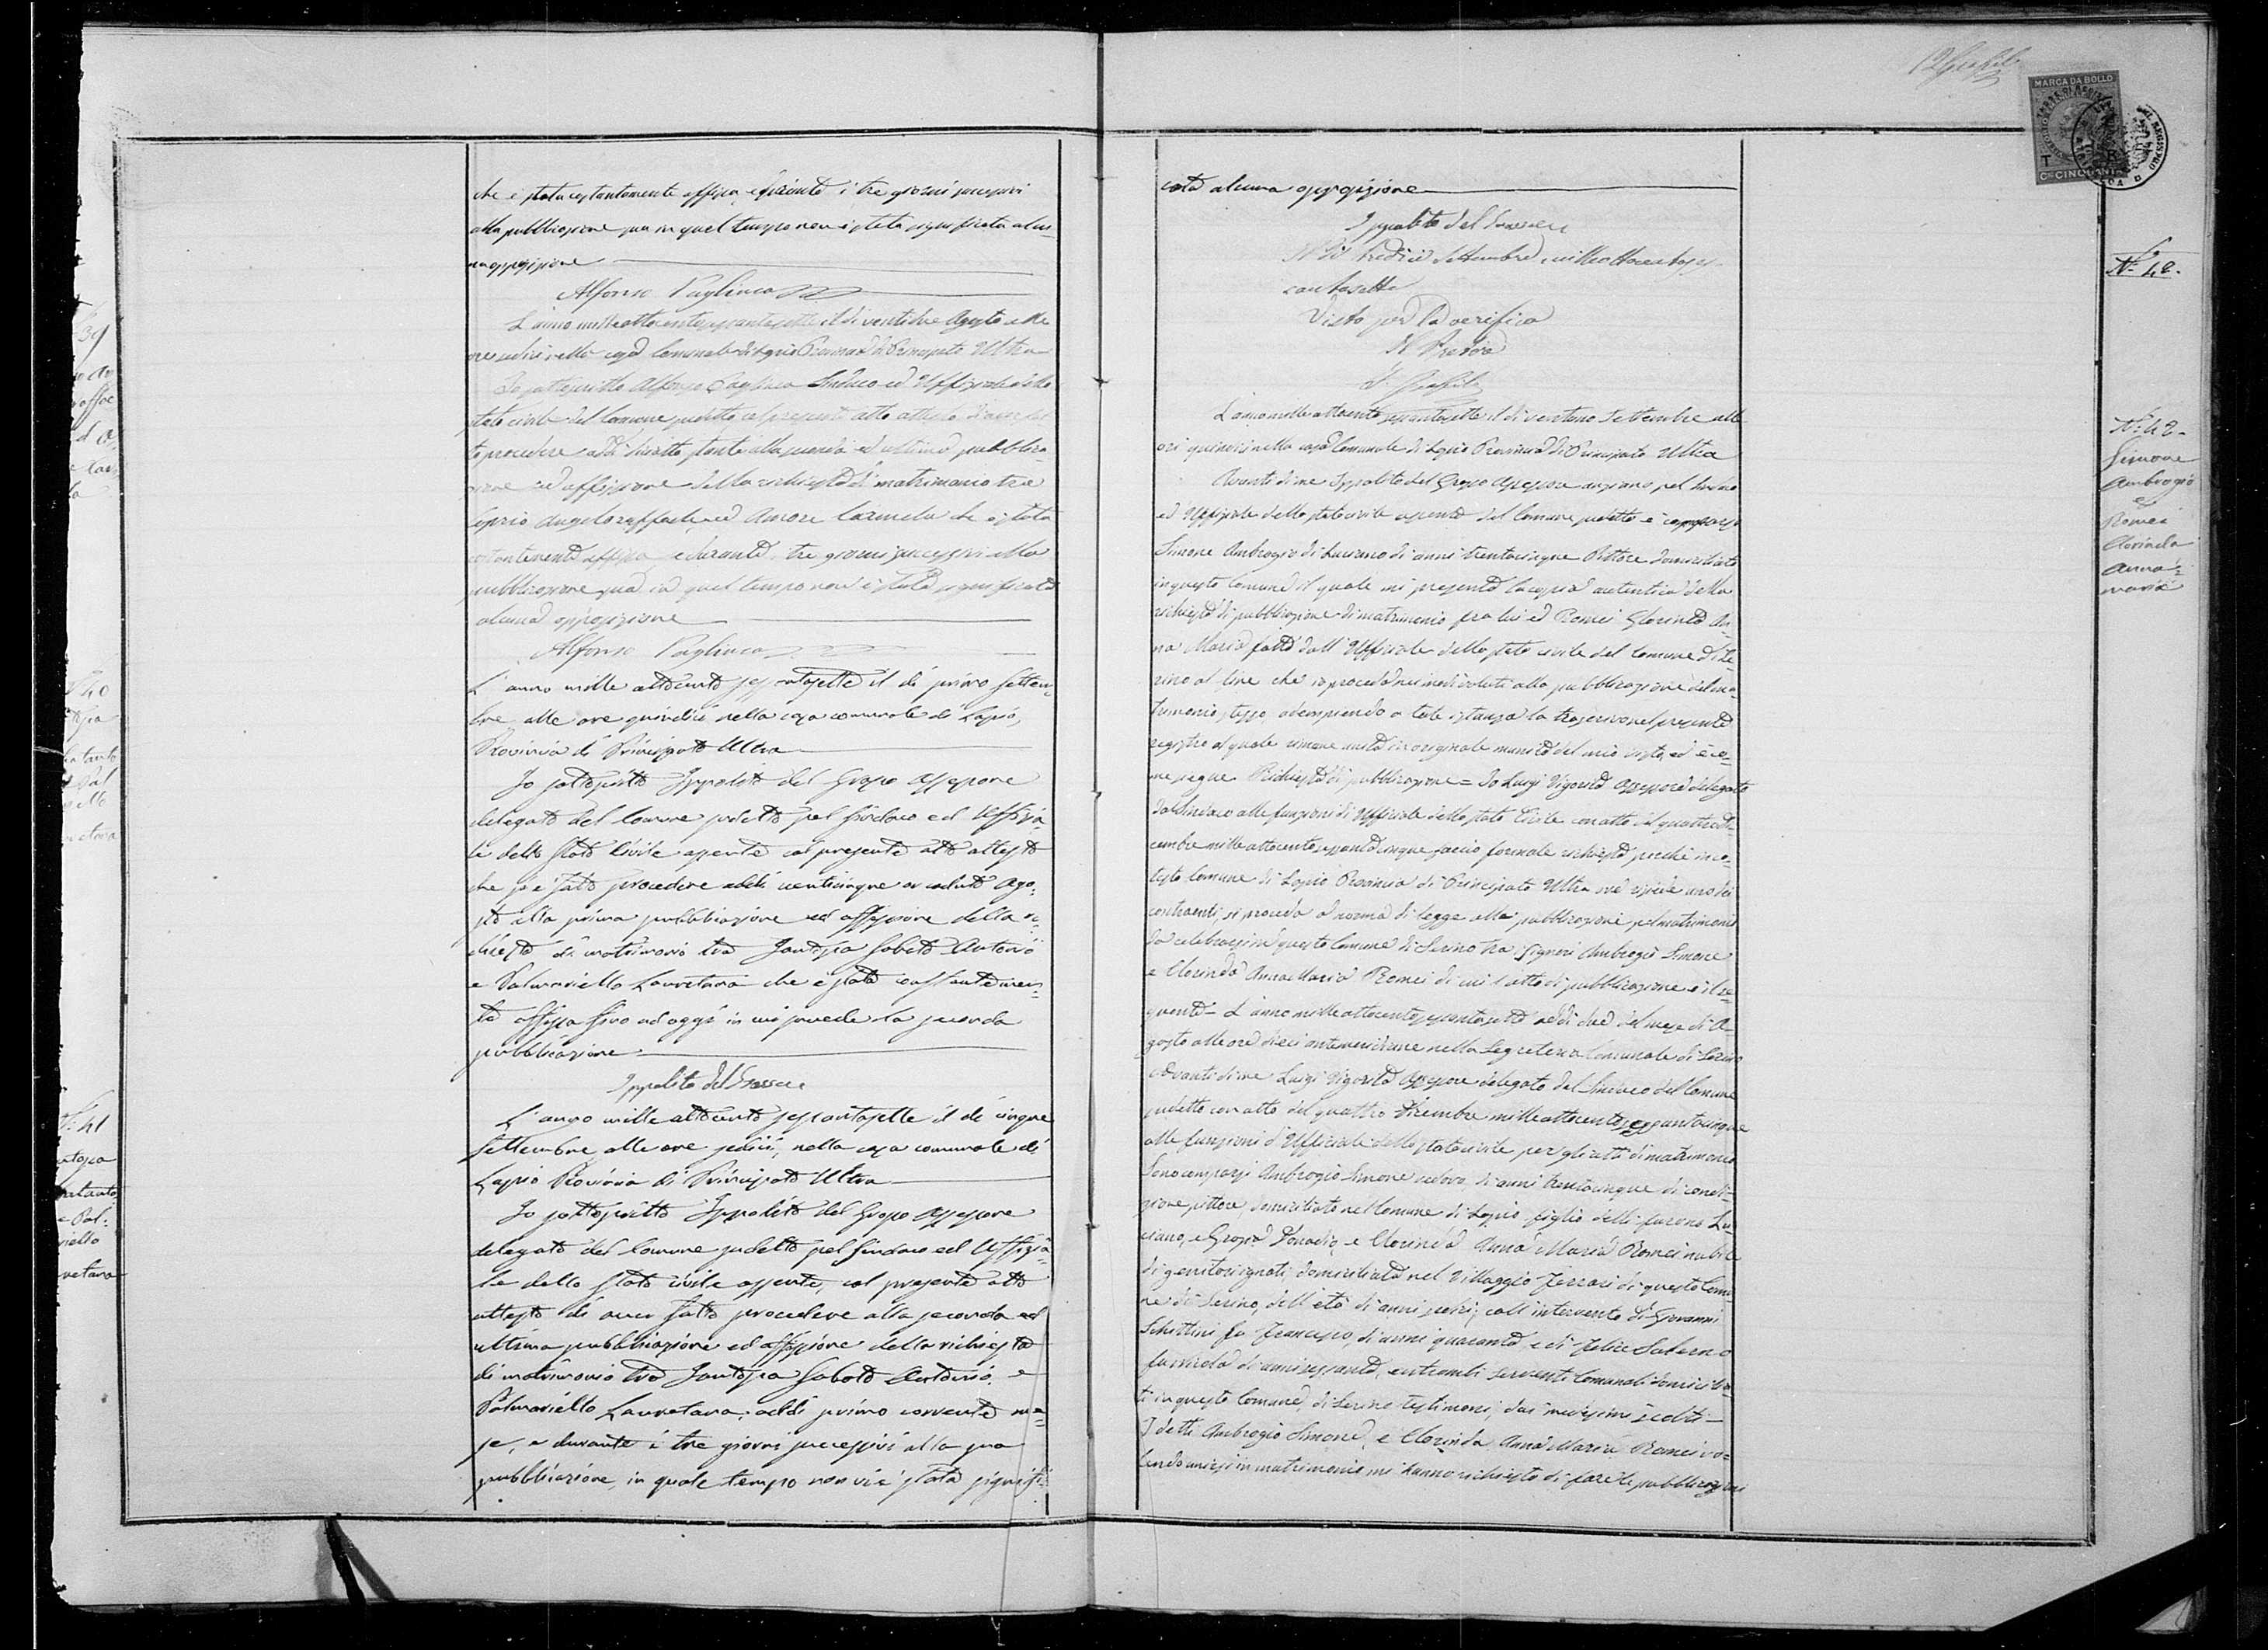 che è stata costantemente affissa e durante i tre giorni successivi
alla pubblicazione qua in quel tempo non è stata significata alcu-
na opposizione
Alfonso Pagliuca
L'anno mille ottocento sessantasette il dì ventidue Agosto alle
ore sedici nella casa Comunale di Lapio Provincia di Principato Ultra
Io sottoscritto Alfonso Pagliuca Sindaco ed Uffiziale dello
stato civile del Comune sudetto col presente atto attesto d'aver fat-
to procedere addì diciotto stante alla seconda ed ultima pubblica-
zione ed affissione della richiesta di matrimonio tra
Ciprio Angeloraffaele ed Amore Carmela che è stata
costantemente affissa e durante tre giorni successivi alla
pubblicazione qua in quel tempo non è stata significata
alcuna opposizione
Alfonso Pagliuca
L'anno mille ottocento sessantasette il dì primo Settem-
bre alle ore quindici nella casa comunale di Lapio,
Provincia di Principato Ultra
Io sottoscritto Ippolito del Grosso Assessore
delegato del Comune sudetto pel Sindaco ed Uffizia-
le dello Stato Civile assente col presente atto attesto
che si è fatto procedere addì venticinque or caduto Ago-
sto alla prima pubblicazione ed affissione della ri-
chiesta di matrimonio tra Santosa Sabato Antonio
e Palmariello Lauretana che è stata costantemen-
te affissa fino ad oggi in cui procede la seconda
pubblicazione
Ippolito del Grosso
L'anno mille ottocento sessantasette il dì cinque
Settembre alle ore sedici, nella casa comunale di
Lapio Provincia di Principato Ultra
Io sottoscritto Ippolito del Grosso Assessore
delegato del Comune sudetto pel Sindaco ed Uffizia-
le dello Stato civile assente, col presente atto
attesto di aver fatto procedere alla seconda ed
ultima pubblicazione ed affissione della richiesta
di matrimonio tra Santosa Sabato Antonio e
Palmariello Lauretana, addì primo corrente me-
se, e durante i tre giorni successivi alla sua
pubblicazione, in quale tempo non vi è stata signifi-
N° 41
cata alcuna opposizione
Ippolito del Grosso
N° 13 tredici Settembre mille ottocentosess-
santasette
Visto per la verifica
Il Pretore
MARCA DA BOLLO
Cmi CINQUANTA
N° 42.
N° 42.
Simone
Ambrogio
e
Romei
Clorinda
Anna
maria
L'anno mille ottocento sessantasette il dì ventuno Settembre alle
ore quindici nella casa Comunale di Lapio Provincia di Principato Ultra
Avanti di me Ippolito del Grosso Assessore anziano pel Sindaco
ed Uffiziale dello stato civile assente del Comune sudetto è comparso
Simone Ambrogio di Luciano di anni trentacinque Pittore domiciliato
in questo Comune il quale mi presenta la copia autentica della
richiesta di pubblicazione di matrimonio fra lui ed Romei Clorinda An-
na Maria fatta dall'Ufficiale dello stato civile del Comune di Se-
rino al fine che io proceda nei modi voluti alla pubblicazione del ma-
trimonio stesso, adempiendo a tale istanza la trascrivo nel presente
registro al quale rimane unita in originale munita del mio visto, ed è co-
me segue Richiesta di pubblicazione = Io Luigi Vigorita Assessore delegato
dal Sindaco alle funzioni di Ufficiale dello stato Civile con atto del quattro di-
cembre mille ottocento sessantacinque faccio formale richiesta perché in co-
testo Comune di Lapio Provincia di Principato Ultra ove risiede uno dei
contraenti, si proceda a norma di legge alla pubblicazione pel matrimonio
da celebrarsi in questo Comune di Serino tra i signori Ambrogio Simone
e Clorinda Anna Maria Romei di cui l'atto di pubblicazione è il se-
guente = L'anno mille ottocento sessantasette addì due del mese di A-
gosto alle ore dieci antemeridiane nella Segreteria Comunale di Serino
Avanti di me Luigi Vigorita Assessore delegato del Sindaco del Comune
sudetto con atto del quattro Dicembre mille ottocento sessantacinque
alle funzioni di Ufficiale dello stato civile per gli atti di matrimonio
Sono comparsi Ambrogio Simone vedovo, di anni trentacinque di condi-
zione pittore, domiciliato nel Comune di Lapio figlio delli furono Lu-
ciano, e Grazia Donadio, e Clorinda Anna Maria Romei nubile
di genitori ignoti domiciliata nel Villaggio Ferrari di questo Comu-
ne di Serino, dell'età di anni sedici, coll'intervento di Giovanni
Schettini fu Francesco, di anni quaranta, e di Felice Salerno
fu Nicola di anni sessanta, entrambi serventi Comunali domicilia-
ti in questo Comune di Serino testimoni, dai medesimi scelti =
I detti Ambrogio Simone, e Clorinda Anna Maria Romei vo-
lendo unirsi in matrimonio mi hanno richiesto di fare le pubblicazioni